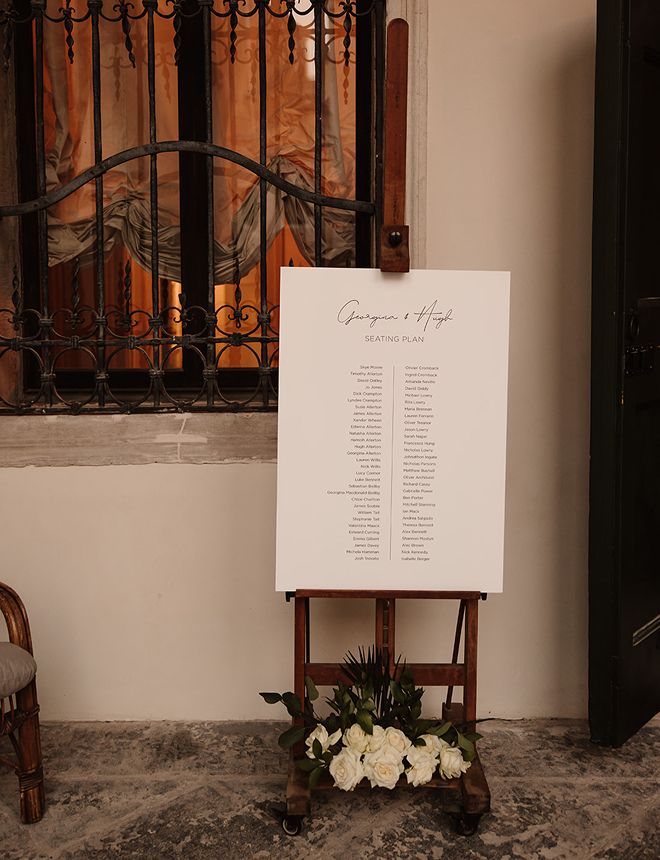 Georgina & Hugh
SEATING PLAN
Skye Moore
Timothy Allerton
David Oatley
Jo Jones
Dick Crampton
Lyndee Crampton
Susie Allerton
James Allerton
Xander Wheen
Edwina Allerton
Natasha Allerton
Hamish Allerton
Hugh Allerton
Georgina Allerton
Lauren Willis
Nick Willis
Lucy Connor
Luke Bennett
Sebastian Beilby
Georgina Macdonald Beilby
Chloe Charlton
James Sooble
William Tait
Stephanie Tait
Valentina Maack
Edward Curling
Emma Gilbert
James Davies
Michela Hamman
Josh Trevato
Olivier Cromback
Ingrid Cromback
Amanda Neville
David Diddy
Michael Lowry
Rita Lowry
Maria Brennan
Lauren Ferraro
Oliver Treanor
Jason Lowry
Sarah Napier
Francesca Hung
Nicholas Lowry
Johnathon Ingate
Nicholas Parsons
Matthew Bushell
Oliver Architson
Richard Casey
Gabrielle Power
Ben Porter
Mitchell Manning
Ian Mack
Andrea Salgado
Theresa Bennett
Alex Bennett
Shannon Mostyn
Alec Brown
Nick Kennedy
Isabelle Berger